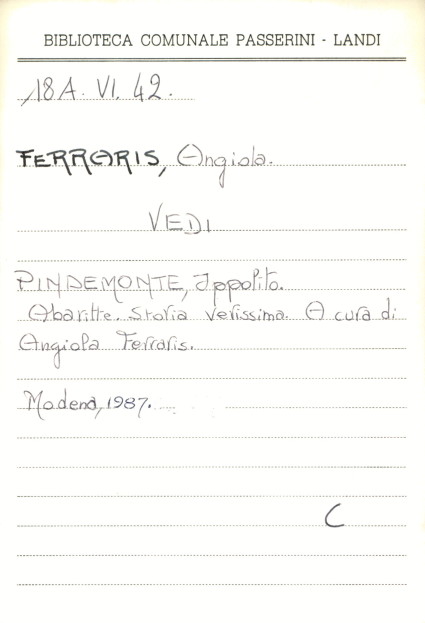 BIBLIOTECA COMUNALE PASSERINI - LANDI
18A. VI. 42.
FERRARIS, Angiola.
VEDI
PINDEMONTE, Ippolito.
Abaritte. Storia verissima. A cura di
Angiola Ferraris.
Modena, 1987.
C